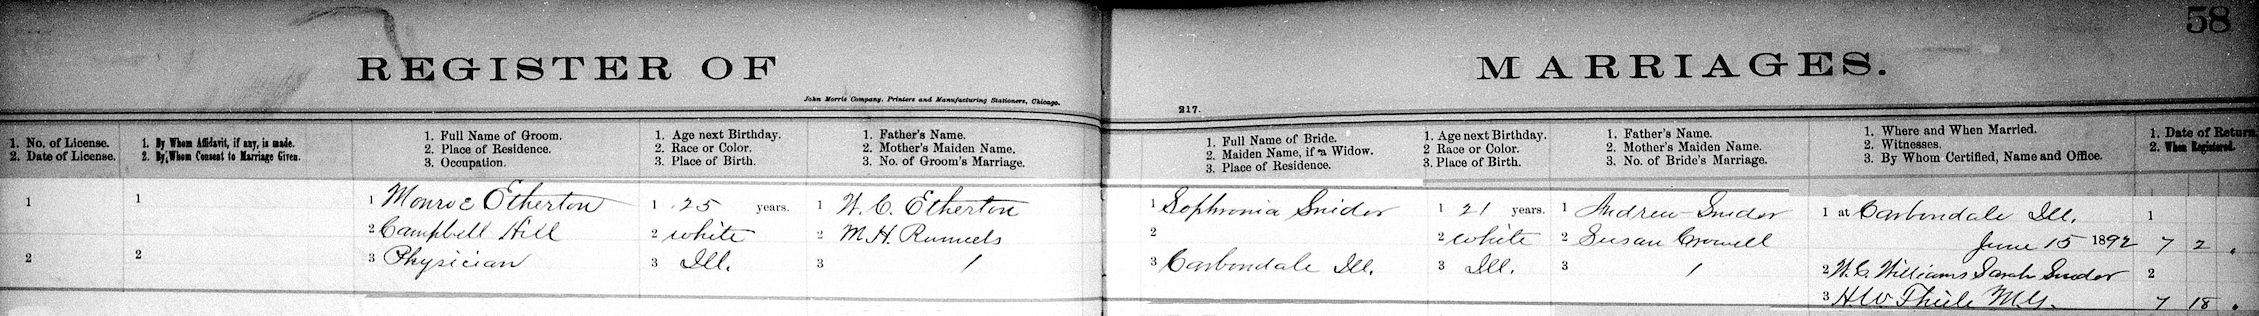 58
REGISTER OF MARRIAGES.
John Morris Company, Printers and Manufacturing Stationers, Chicago.
217.
1. No. of License.
2. Date of License.
1. By Whom Affidavit, if any, is made.
2. By Whom Consent to Marriage Given.
1. Full Name of Groom.
2. Place of Residence.
3. Occupation.
1. Age next Birthday.
2. Race or Color.
3. Place of Birth.
1. Father's Name.
2. Mother's Maiden Name.
3. No. of Groom's Marriage.
1. Full Name of Bride.
2. Maiden Name, if a Widow.
3. Place of Residence.
1. Age next Birthday.
2. Race or Color.
3. Place of Birth.
1. Father's Name.
2. Mother's Maiden Name.
3. No. of Bride's Marriage.
1. Where and When Married.
2. Witnesses.
3. By Whom Certified, Name and Office.
1. Date of Return
2. When Registered.
1
2
1
2
1 Monroe Etherton
2 Campbell Hill
3 Physician
1 25 years.
2 white
3 Ill.
1 W. C. Etherton
2 M. H.
3 1
1 Sophronia Snider
2
3 Carbondale Ill.
1 21 years.
2 white
3 Ill.
1 Andrew Snider
2 Susan Crowell
3 1
1 at Carbondale Ill.
June 15 1892
2 W. C. Williams Sarah Snider
3 H. W. Thiele M.G.
1
7 2
2
7 18